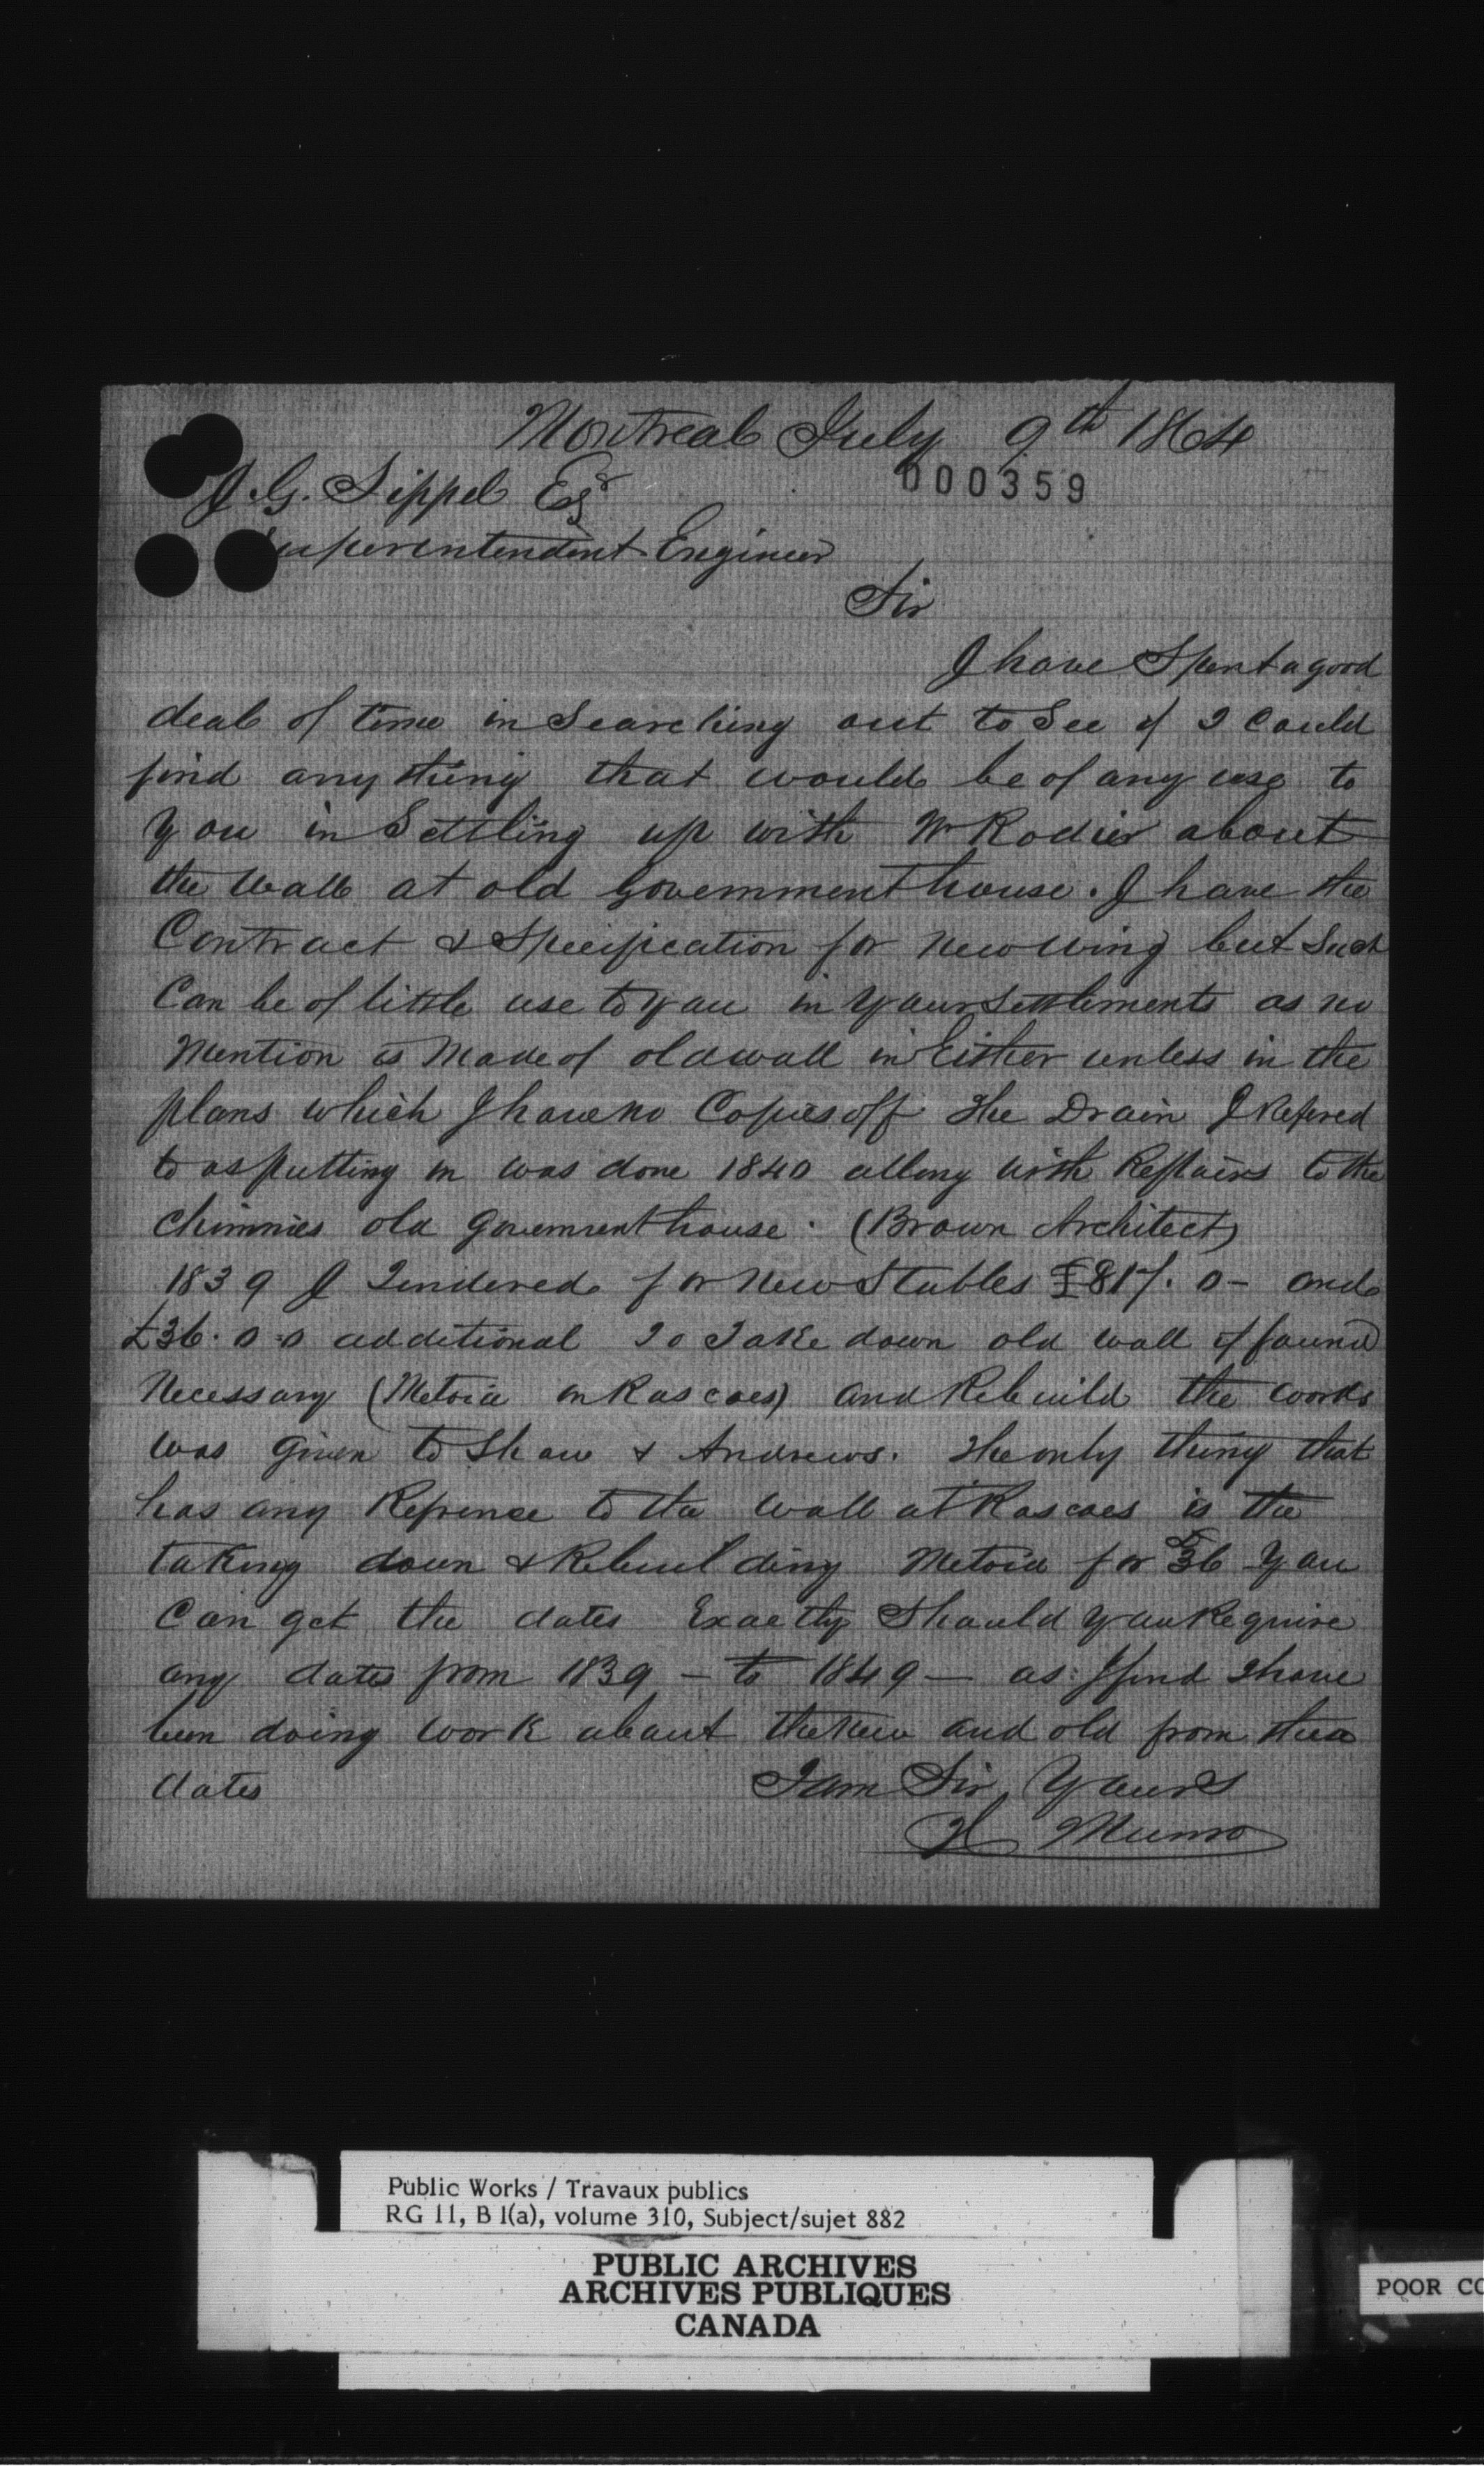 Montreal July 9th 1864
000359
J. G. Sippel Esqr
Superentendent Engineer
Sir
I have Spent a good
deal of time in Searching out to See if I Could
find any thing that would be of any use to
you in Settling up with Mr Rodier about
the Wall at old Government house. I have the
Contract & Specification for New wing but Such
Can be of little use to you in your Settlements as no
Mention is Made of old wall in Either unless in the
plans which I have no Copies off The Drain I Refered
to as putting in was done 1840 allong with Repairs to the
Chimnies old Government house. (Brown Architect)
1839 I Tendered for New Stables £817. 0 - and
£36. 0 = 0 additional To Take down old wall if found
Necessary (Metoia on Rascoes) and Rebuild the works
was Given to Shaw & Andrews. The only thing that
has any Refrence to the wall at Rascoes is the
taking down & Rebuilding Metoia for £36 You
Can get the dates Exactly Should you Require
any dates from 1839 - to 1849 - as I find I have
been doing work about the New and old from these
dates
I am Sir Yours
H Munro
Public Works / Travaux publics
RG 11, B 1(a), volume 310, Subject/sujet 882
PUBLIC ARCHIVES
ARCHIVES PUBLIQUES
CANADA
POOR CO